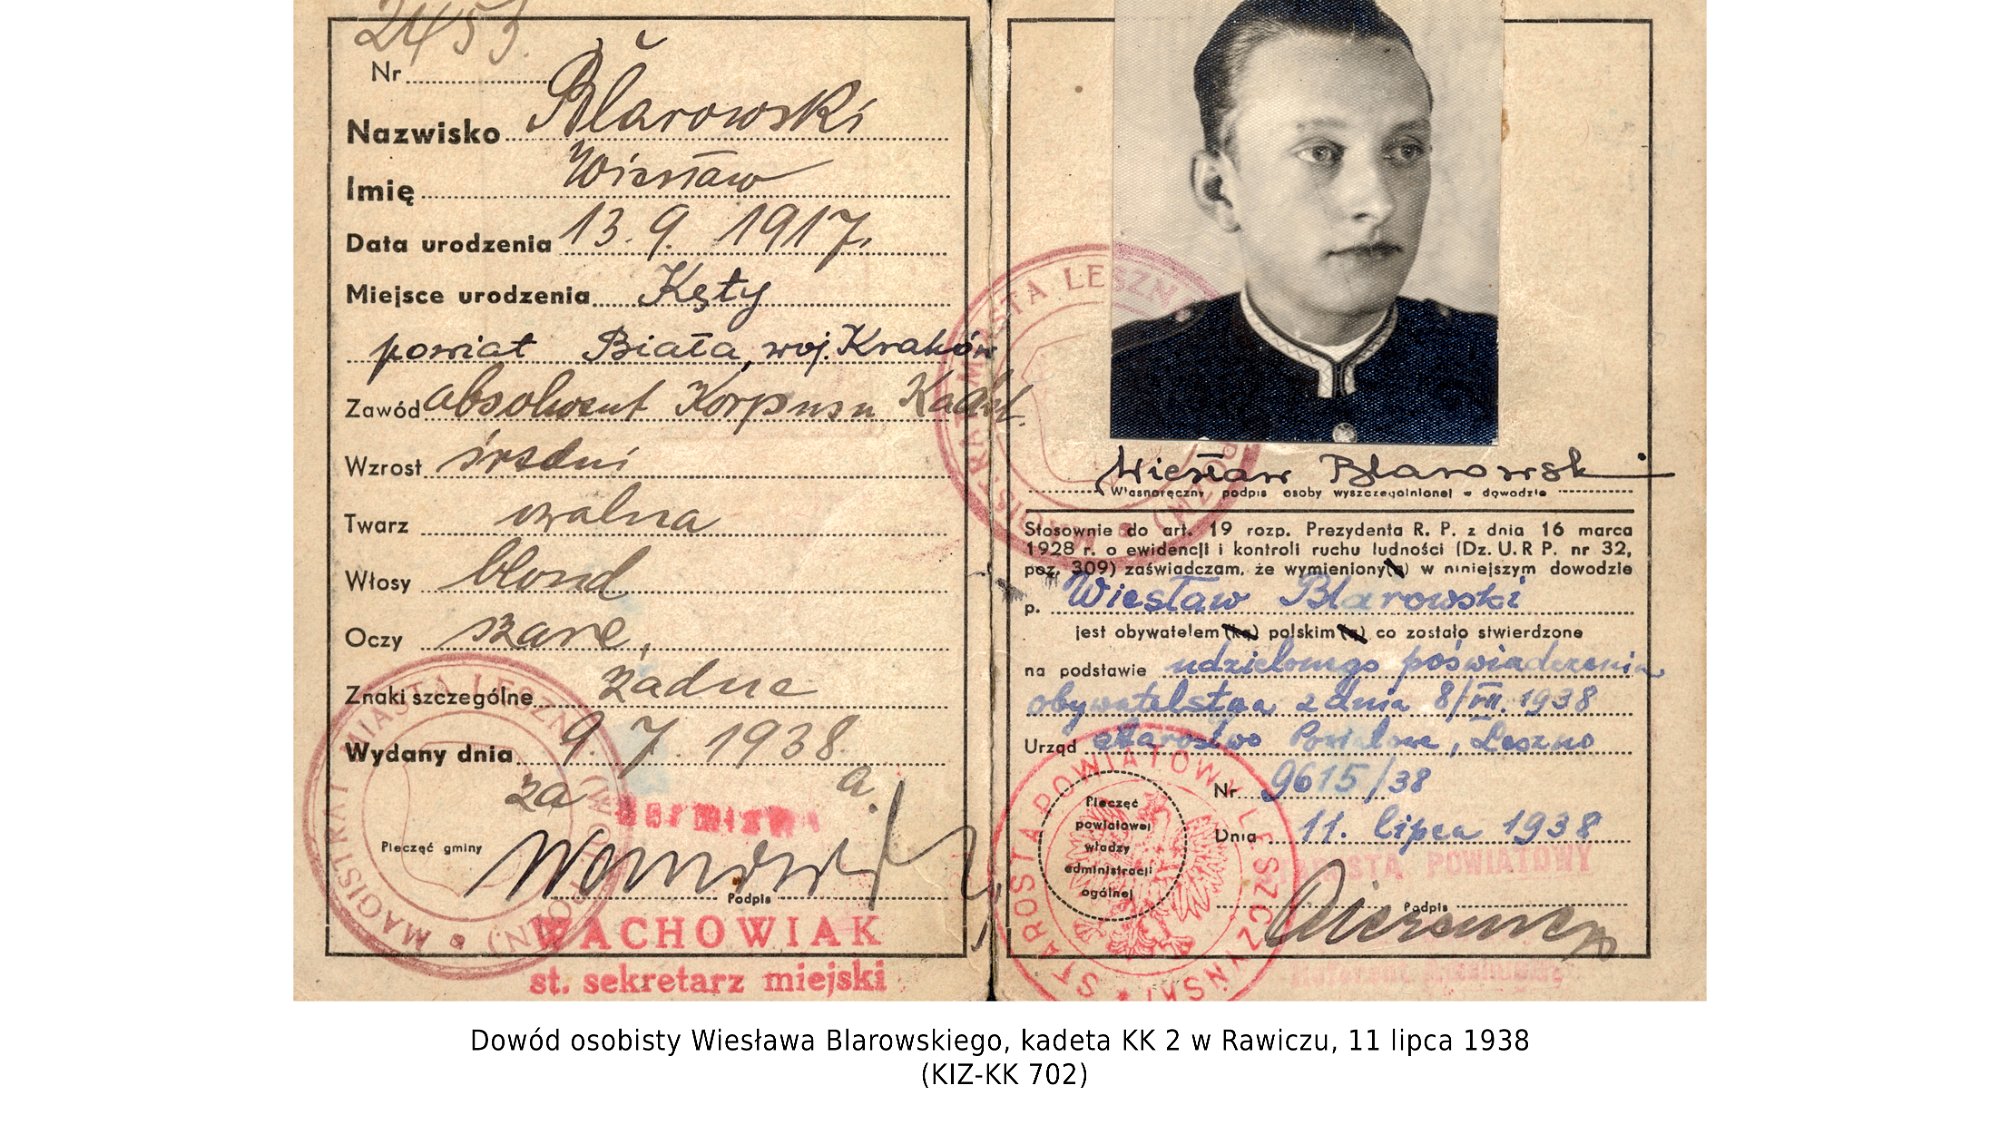 2453.
Nr
Nazwisko Blarowski
Imię Wiesław
Data urodzenia 13. 9. 1917.
Miejsce urodzenia Kęty
powiat Biała, woj. Kraków
Zawód absolwent Korpusu Kadet.
Wzrost średni
Twarz owalna
Włosy blond
Oczy szare,
Znaki szczególne żadne
Wydany dnia 9. 7. 1938.
za
Burmistrza
Pieczęć gminy
Podpis
WACHOWIAK
st. sekretarz miejski
MAGISTRAT MIASTA LESZNA (WOJ. POZN)
MAGISTRAT MIASTA LESZNA
Wiesław Blarowski
Własnoręczny podpis osoby wyszczególnionej w dowodzie
Stosownie do art. 19 rozp. Prezydenta R. P. z dnia 16 marca
1928 r. o ewidencji i kontroli ruchu ludności (Dz. U. R P. nr 32,
poz. 309) zaświadczam, że wymieniony(a) w niniejszym dowodzie
p. Wiesław Blarowski
jest obywatelem(ką) polskim(ą) co zostało stwierdzone
na podstawie udzielonego poświadczenia
obywatelstwa z dnia 8/VII. 1938
Urząd Starostwo Powiatowe, Leszno
Nr 9615/38
Dnia 11. lipca 1938
Pieczęć
powiatowej
władzy
administracji
ogólnej
STAROSTA POWIATOWY LESZCZYŃSKI
STAROSTA POWIATOWY
Podpis
Dowód osobisty Wiesława Blarowskiego, kadeta KK 2 w Rawiczu, 11 lipca 1938
(KIZ-KK 702)